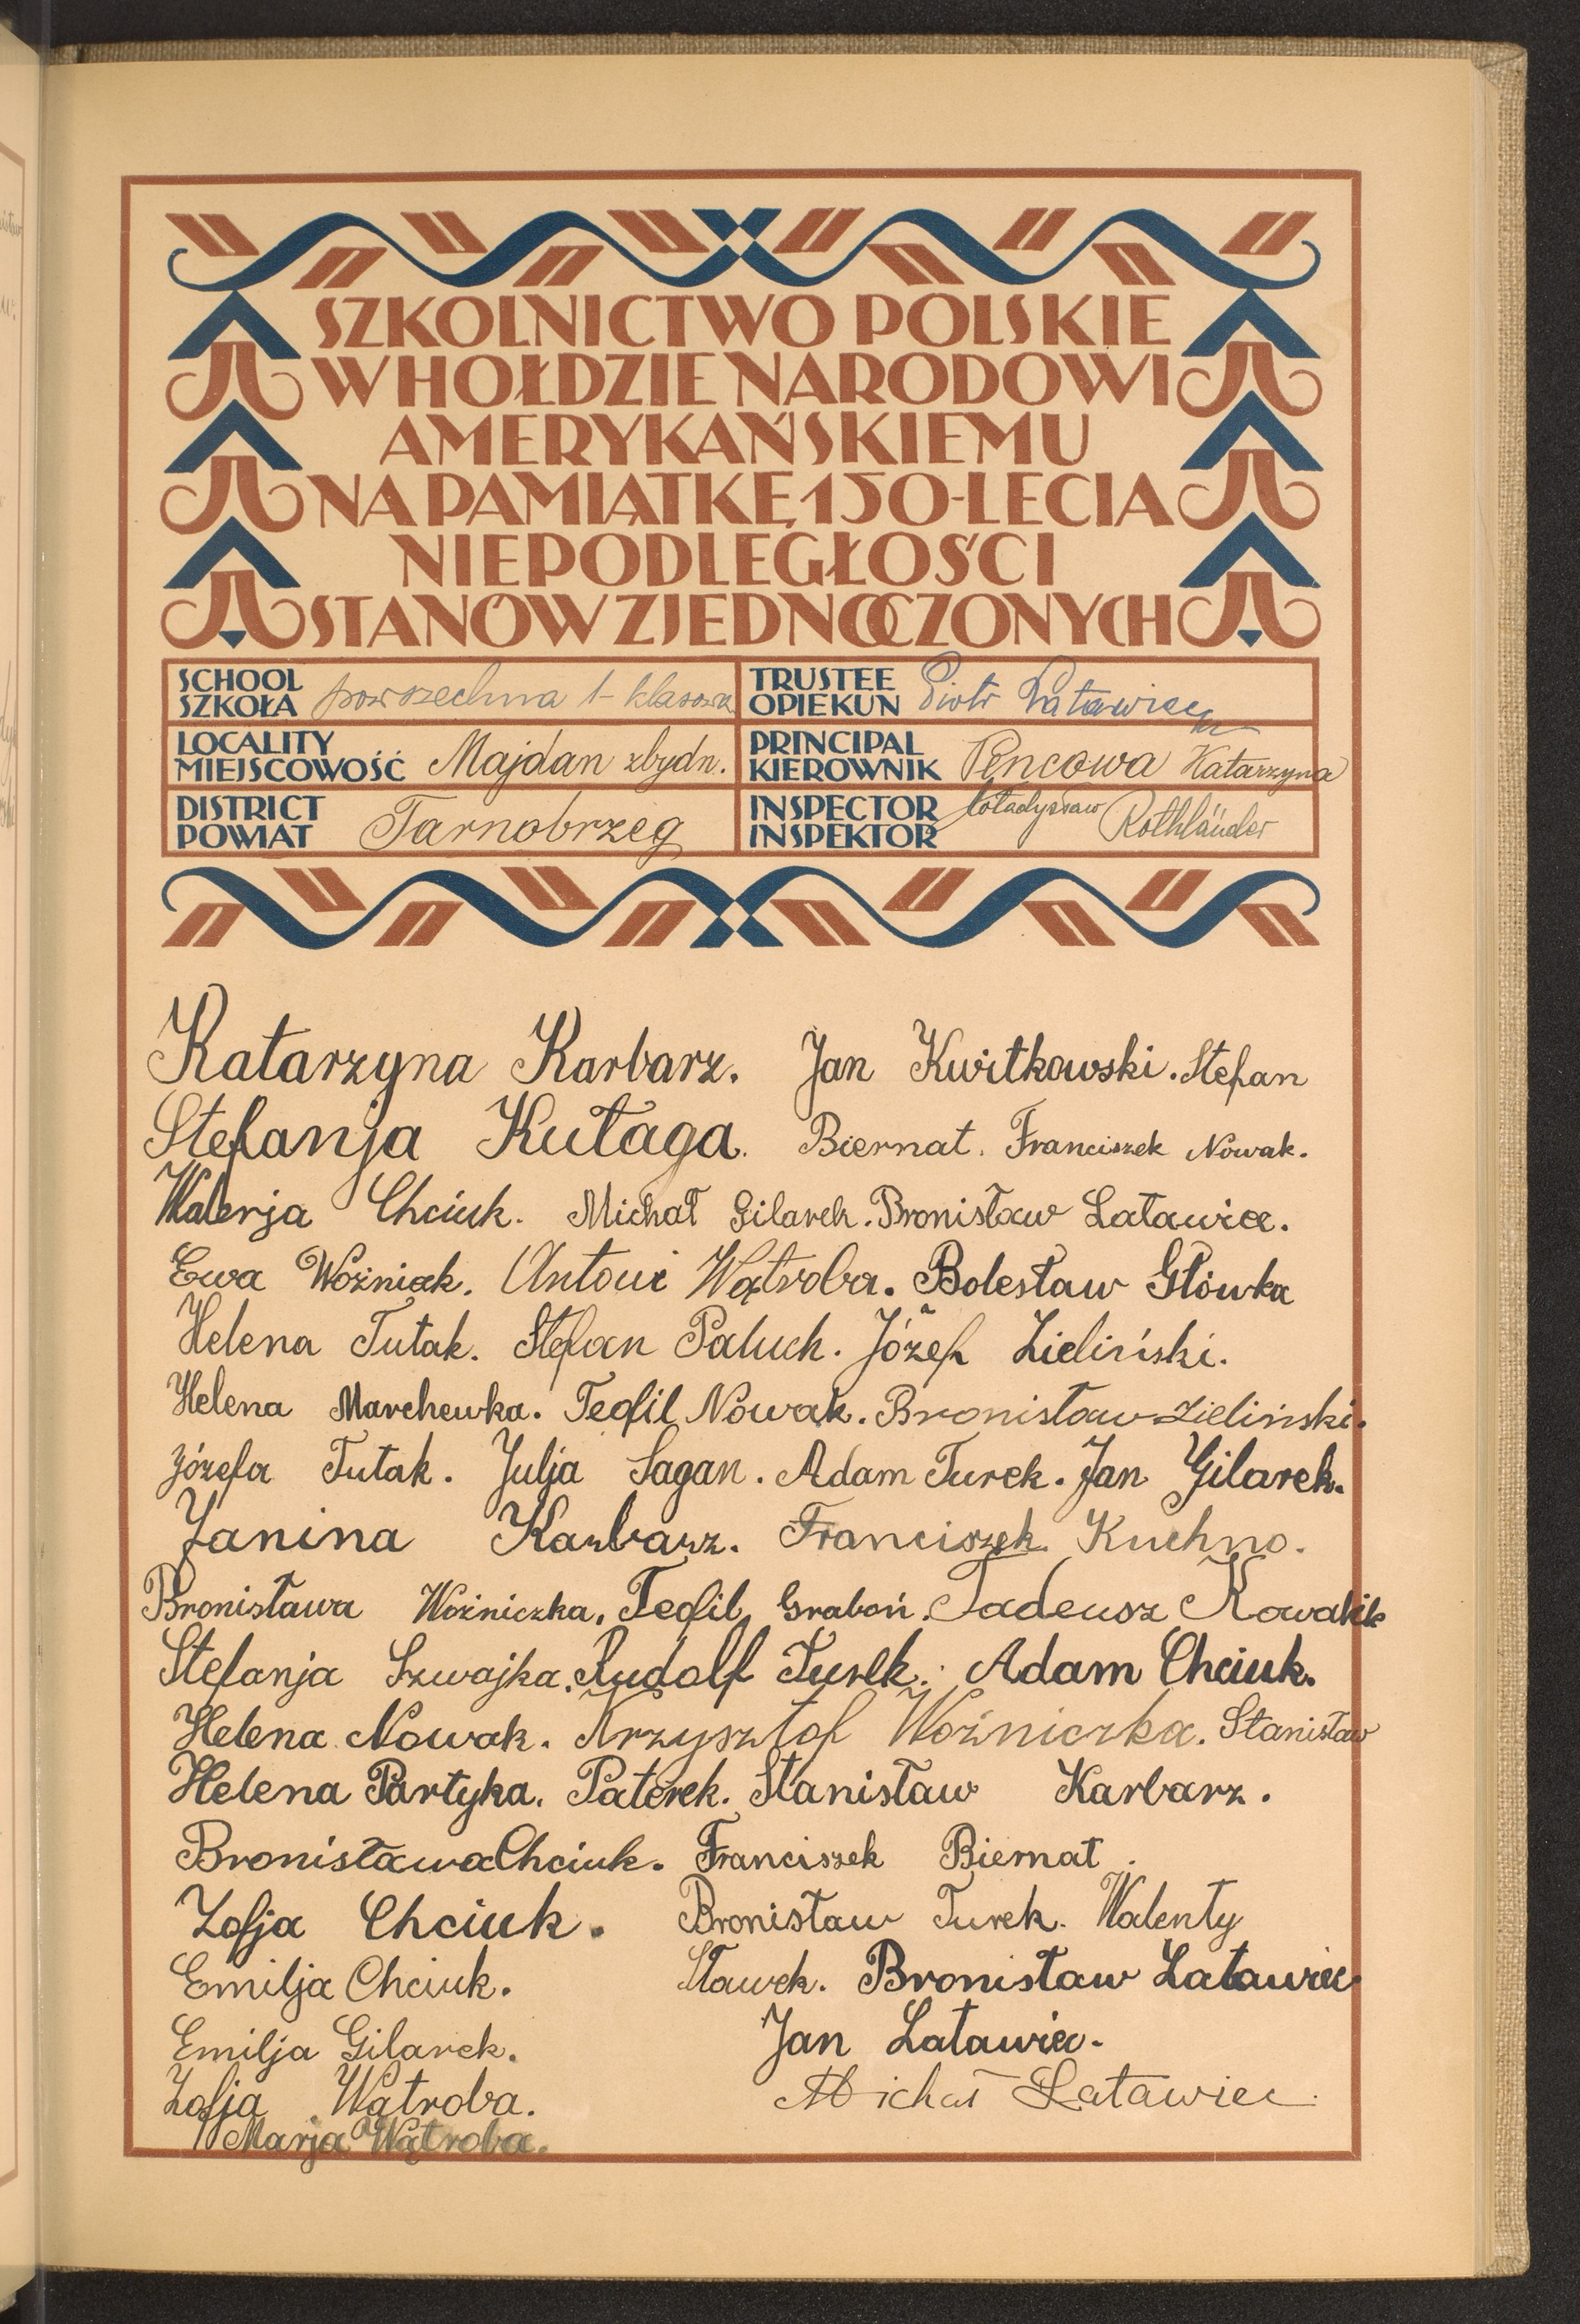 SZKOLNICTWO POLSKIE
W HOŁDZIE NARODOWI
AMERYKAŃSKIEMU
NA PAMIĄTKĘ 150-LECIA
NIEPODLEGŁOŚCI
STANÓW ZJEDNOCZONYCH
SCHOOL
SZKOŁA powszechna 1-klasowa
TRUSTEE
OPIEKUN Piotr Latawiec
LOCALITY
MIEJSCOWOŚĆ Majdan zbydn.
PRINCIPAL
KIEROWNIK Pencowa Katarzyna
DISTRICT
POWIAT Tarnobrzeg
INSPECTOR
INSPEKTOR Władysław Rothländer
Katarzyna Karbarz. Jan Kwitkowski. Stefan
Stefanja Kułaga. Biernat. Franciszek Nowak.
Walerja Chciuk. Michał Gilarek. Bronisław Latawiec.
Ewa Woźniak. Antoni Wątroba. Bolesław Główka
Helena Tutak. Stefan Paluch. Józef Zieliński.
Helena Marchewka. Teofil Nowak. Bronisław Zieliński.
Józefa Tutak. Julja Sagan. Adam Turek. Jan Gilarek.
Janina Karbarz. Franciszek Kuchno.
Bronisława Woźniczka. Teofil Graboń. Tadeusz Kowalik
Stefanja Szwajka. Rudolf Turek. Adam Chciuk.
Helena Nowak. Krzysztof Woźniczka. Stanisław
Helena Partyka. Paterek. Stanisław Karbarz.
Bronisława Chciuk. Franciszek Biernat.
Zofja Chciuk. Bronisław Turek. Walenty
Emilja Chciuk. Sławek. Bronisław Latawiec
Emilja Gilarek. Jan Latawiec.
Zofja Wątroba. Michał Latawiec.
Marja Wątroba.